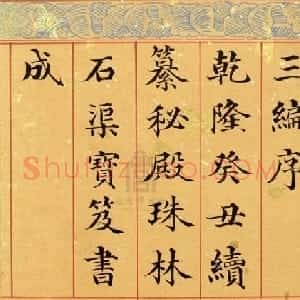 三編序
乾隆癸丑續
纂秘殿珠林
石渠寶笈書
成